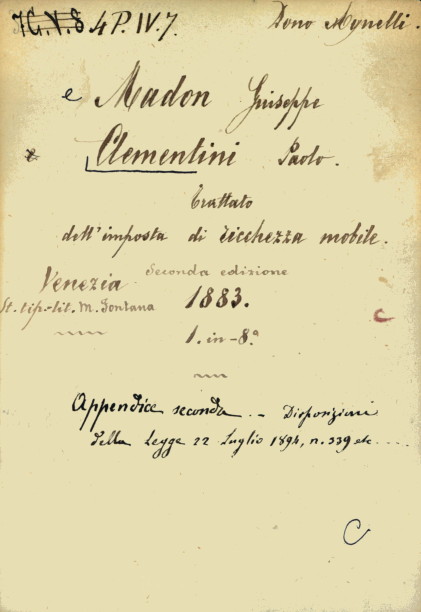 7 G. V. 8 4 P. IV. 7. Dono Mynelli.
e Madon Giuseppe
& Clementini Paolo.
Trattato
dell'imposta di ricchezza mobile.
Seconda edizione
Venezia
1883.
St. tip.-lit. M. Fontana
C
1. in-8.ª
Appendice seconda. - Disposizioni
della Legge 22 Luglio 1894, n. 339 etc....
C